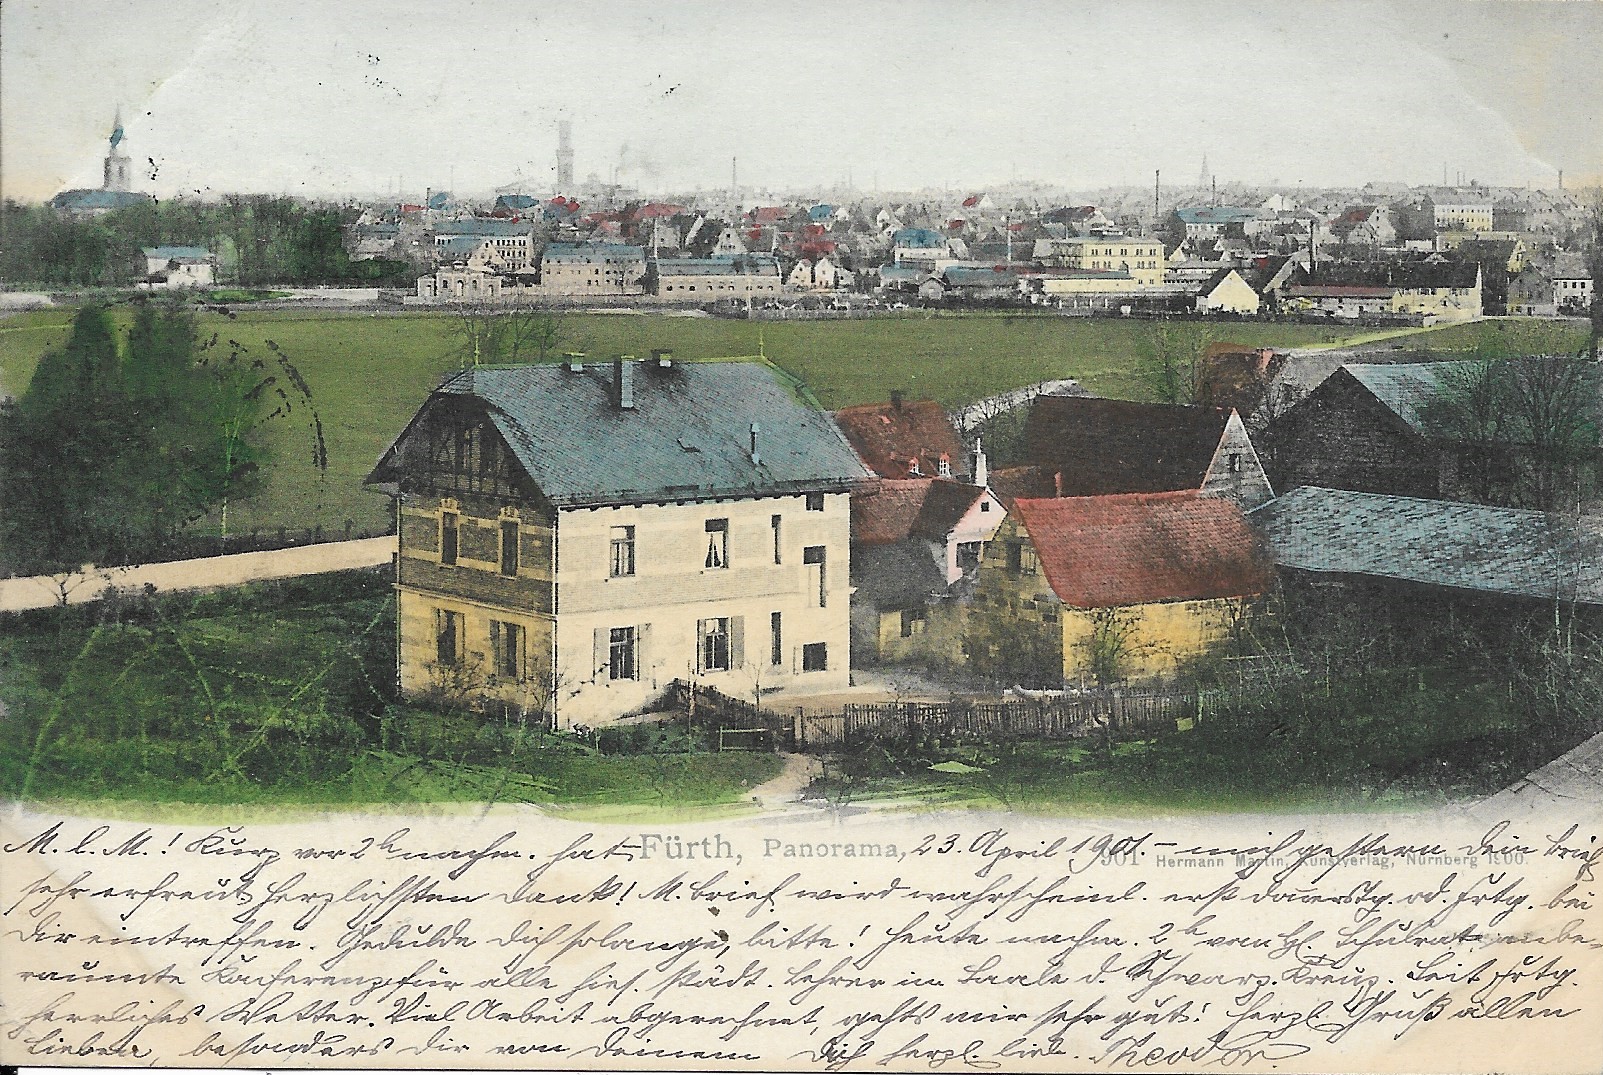 M. l. M.! Kurz vor 2 h nachm. hat Fürth, Panorama, 23. April 1901. – mich gestern Dein Brief
901 Hermann Martin, Kunstverlag, Nürnberg 1900.
sehr erfreut herzlichsten Dank! M. Brief wird wahrscheinl. erst Donnerstg. od. Frtg. bei
Dir eintreffen. Gedulde Dich solange, bitte! Heute nachm. 2 h vom H. Schulrat anbe-
raumte Konferenz für alle hies. städt. Lehrer im Saale d. Schwarz. Kreuz. Seit Frtg.
herrliches Wetter. Viel Arbeit abgerechnet, gehts mir sehr gut! Herzl. Gruß allen
Lieben, besonders Dir von Deinem Dich herzl. lieb. Theodor.